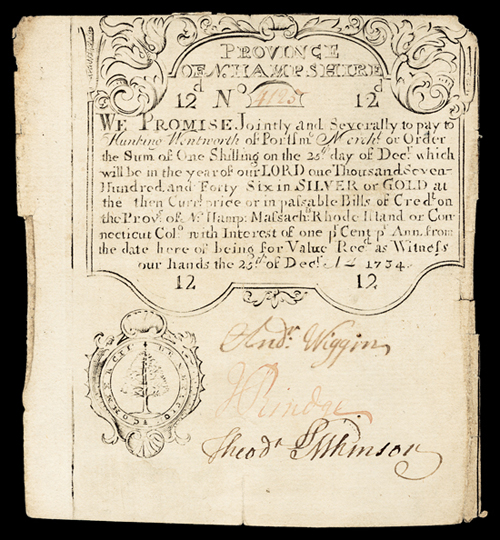 PROVINCE
OF N HAMPSHIRE
12ᵈ Nº 4195 12ᵈ
WE PROMISE Jointly and Severally to pay to
Hunking Wentworth of Portsmº Merchᵗ or Order
the Sum of One Shilling on the 25ᵗʰ day of Decʳ which
will be in the year of our LORD one Thousand Seven-
Hundred and Forty Six in SILVER or GOLD at
the then Currᵗ price or in passable Bills of Credᵗ on
the Provˢ of Nˢ Hamp: Massachˢ Rhode Island or Con-
necticut Colº with Interest of one pʳ Cent pʳ Ann. from
the date here of being for Value Recᵈ as Witness
our hands the 25ᵗʰ of Decʳ 1734
12 12
COMMERCII BENEFICIO
Andʳ Wiggin
J Rindge
Theodʳ Atkinson